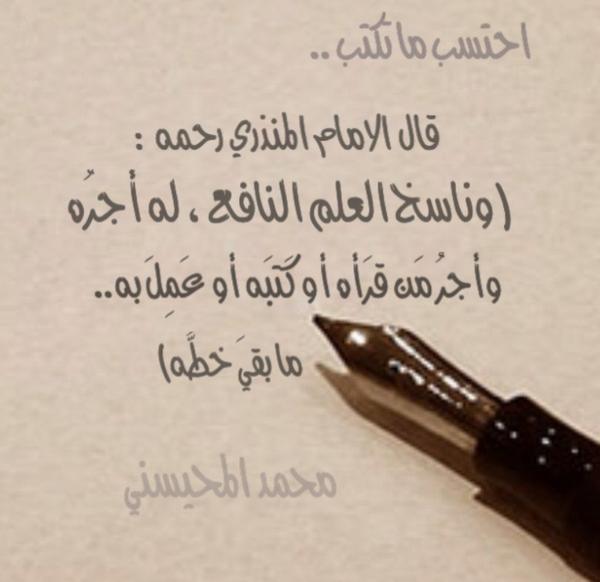 احتسب ما تكتب ..
قال الامام المنذري رحمه :
(وناسخ العلم النافع ، له أجرُه
وأجرُ مَن قرَأه أو كَتبَه أو عَمِلَ به..
ما بقيَ خطَّه)
محمد المحيسني